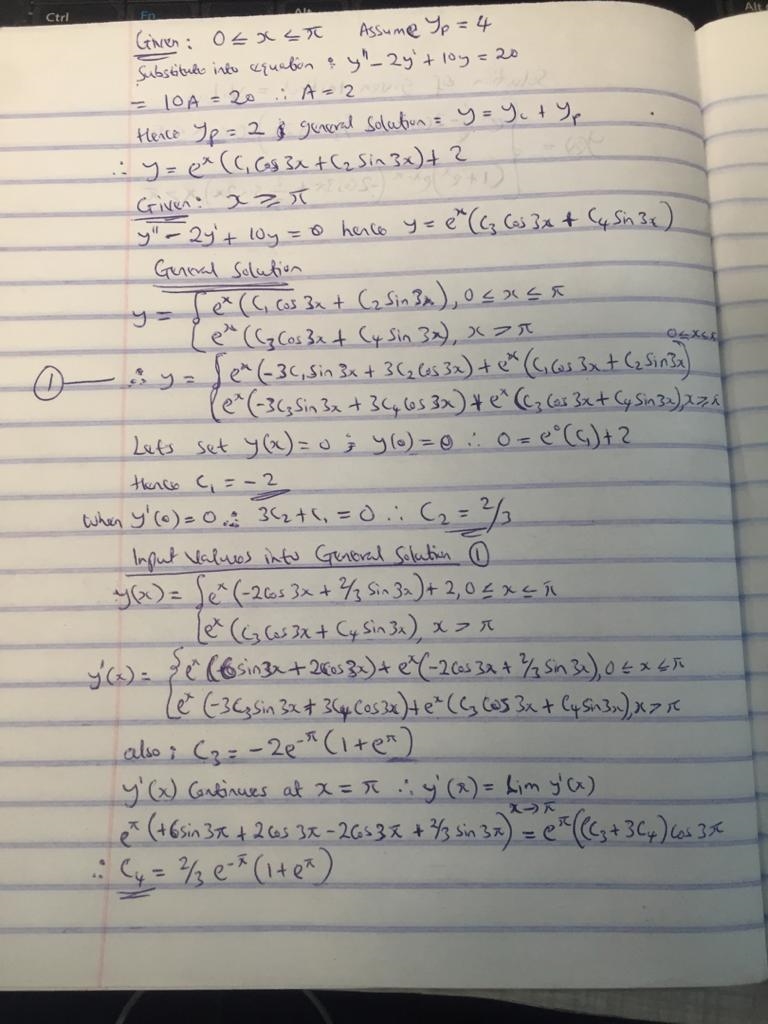 Ctrl
Fn
Alt
Alt
Given: 0 ≤ x ≤ π Assume yp = 4
Substitute into equation: y'' - 2y' + 10y = 20
= 10A = 20 ∴ A = 2
Hence yp = 2 & general solution = y = yc + yp
∴ y = e^x (C1 Cos 3x + C2 Sin 3x) + 2
Given: x ≥ π
y'' - 2y' + 10y = 0 hence y = e^x (C3 Cos 3x + C4 Sin 3x)
General Solution
y = { e^x (C1 Cos 3x + C2 Sin 3x), 0 ≤ x ≤ π
e^x (C3 Cos 3x + C4 Sin 3x), x > π
① ∴ y = { e^x (-3C1 Sin 3x + 3C2 Cos 3x) + e^x (C1 Cos 3x + C2 Sin 3x) 0 ≤ x ≤ π
e^x (-3C3 Sin 3x + 3C4 Cos 3x) + e^x (C3 Cos 3x + C4 Sin 3x), x ≥ π
Lets set y(x) = 0 ; y(0) = 0 ∴ 0 = e^0 (C1) + 2
Hence C1 = -2
When y'(0) = 0 ∴ 3C2 + C1 = 0 ∴ C2 = 2/3
Input Values into General Solution ①
y(x) = { e^x (-2Cos 3x + 2/3 Sin 3x) + 2, 0 ≤ x ≤ π
e^x (C3 Cos 3x + C4 Sin 3x), x > π
y'(x) = { e^x (6 Sin 3x + 2Cos 3x) + e^x (-2Cos 3x + 2/3 Sin 3x), 0 ≤ x ≤ π
e^x (-3C3 Sin 3x + 3C4 Cos 3x) + e^x (C3 Cos 3x + C4 Sin 3x), x > π
also ; C3 = -2e^-π (1 + e^π)
y'(x) Continues at x = π ∴ y'(π) = Lim y'(x)
x→π
e^π (+6 Sin 3π + 2Cos 3π - 2Cos 3π + 2/3 Sin 3π) = e^π ((C3 + 3C4) Cos 3π
∴ C4 = 2/3 e^-π (1 + e^π)